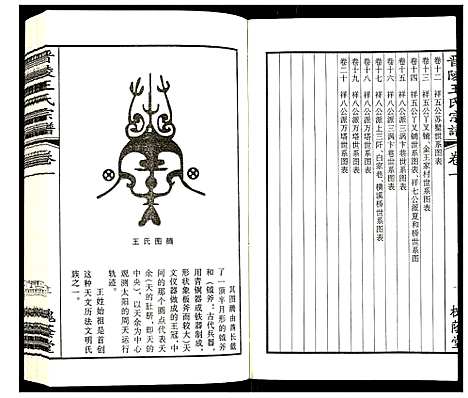 晋陵王氏宗谱 卷一
卷十二 祥五公苏墅世系图表
卷十三 祥五公丫叉铺、金王家村世系图表
卷十四 祥五公丫叉铺世系图表、祥七公派夏和桥世系图表
卷十五 祥八公派三涡卞巷世系图表
卷十六 祥八公派三涡卞巷世系图表
卷十七 祥八公派三涡卞巷世系图表
卷十八 祥八公派上三阡、白家巷、横溪桥世系图表
卷十九 祥八公派万塔世系图表
卷二十 祥八公派万塔世系图表
一
槐荫堂
王氏图腾
其图腾由酋长戴
了一顶半月形的钺斧
和（钺斧：古代兵器，
用青铜器或铁器制成，
形状象板斧而较大）天
文仪器做成的王冠，中
间的那个圆点代表天
余（天的肚脐，即天的
中央），以天余为中心
观测太阳的周天运行
轨迹。
王姓始祖是首创
这种天文历法文明氏
族之一。
晋陵王氏宗谱 卷
槐荫堂